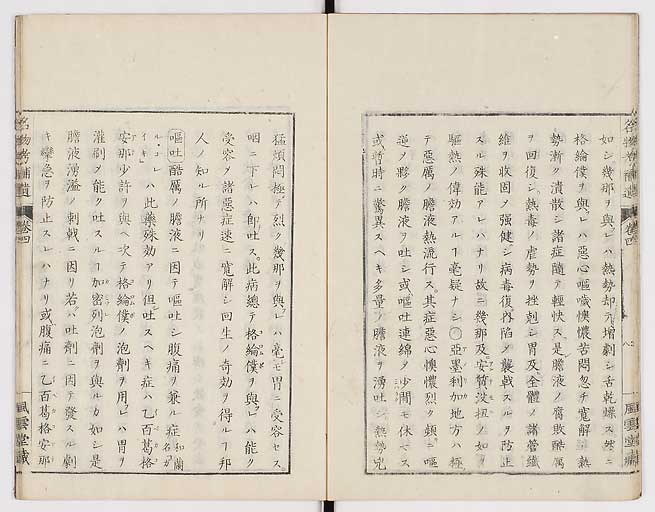 如シ幾那ヲ與レハ熱勢却テ增劇シ舌乾燥ス然ニ
格綸僕ヲ與レハ惡心嘔噦懊憹苦悶忽チ寛解シ熱
勢漸ク潰散シ諸症隨テ輕快ス是膽液ノ腐敗酷厲
ヲ回復シ熱毒ノ虐勢ヲ挫剋シ胃及全體ノ諸管纖
維ヲ收固メ强健シ病毒復內陷ノ襲戟スルヲ防止
スル殊能アレハナリ故ニ幾那及安質没扭ノ如キ
驅熱ノ偉効アルー毫疑ナシ〇亞墨利加地方ハ極
テ惡厲ノ膽液熱流行ス其症惡心懊憹烈ク頻ニ嘔
逆ノ夥ク膽液ヲ吐シ或嘔吐連綿ヲ少間モ休マス
或暫時ニ驚異スヘキ多量ノ膽液ヲ湧吐シ熱勢兇
名物考補遺
卷四
風雲堂藏
猛煩悶極テ烈ク幾那ヲ與レハ毫モ胃ニ受容セス
咽ニ下レハ卽吐ス此病總テ格綸僕ヲ與レハ能ク
受容ノ諸惡症速ニ寛解シ回生ノ奇効ヲ得ルー邦
人ノ知ル所ナリ
嘔吐酷厲ノ膽液ニ因テ嘔吐シ腹痛ヲ兼ル症和蘭名ガル・コレイキ
ハ此藥殊効アリ但吐スヘキ症ハ乙百葛格
安那少許ヲ與ヘ次テ格綸僕ノ泡劑ヲ用レハ胃ヲ
灌刷ノ能ク吐スルー加密列泡劑ヲ與ルカ如シ是
膽液湧溢ノ刺戟ニ因リ若ハ吐劑ニ因テ發スル劇
キ攣急ヲ防止スレハナリ或腹痛ニ乙百葛格安那
名物考補遺
卷四
風雲堂藏